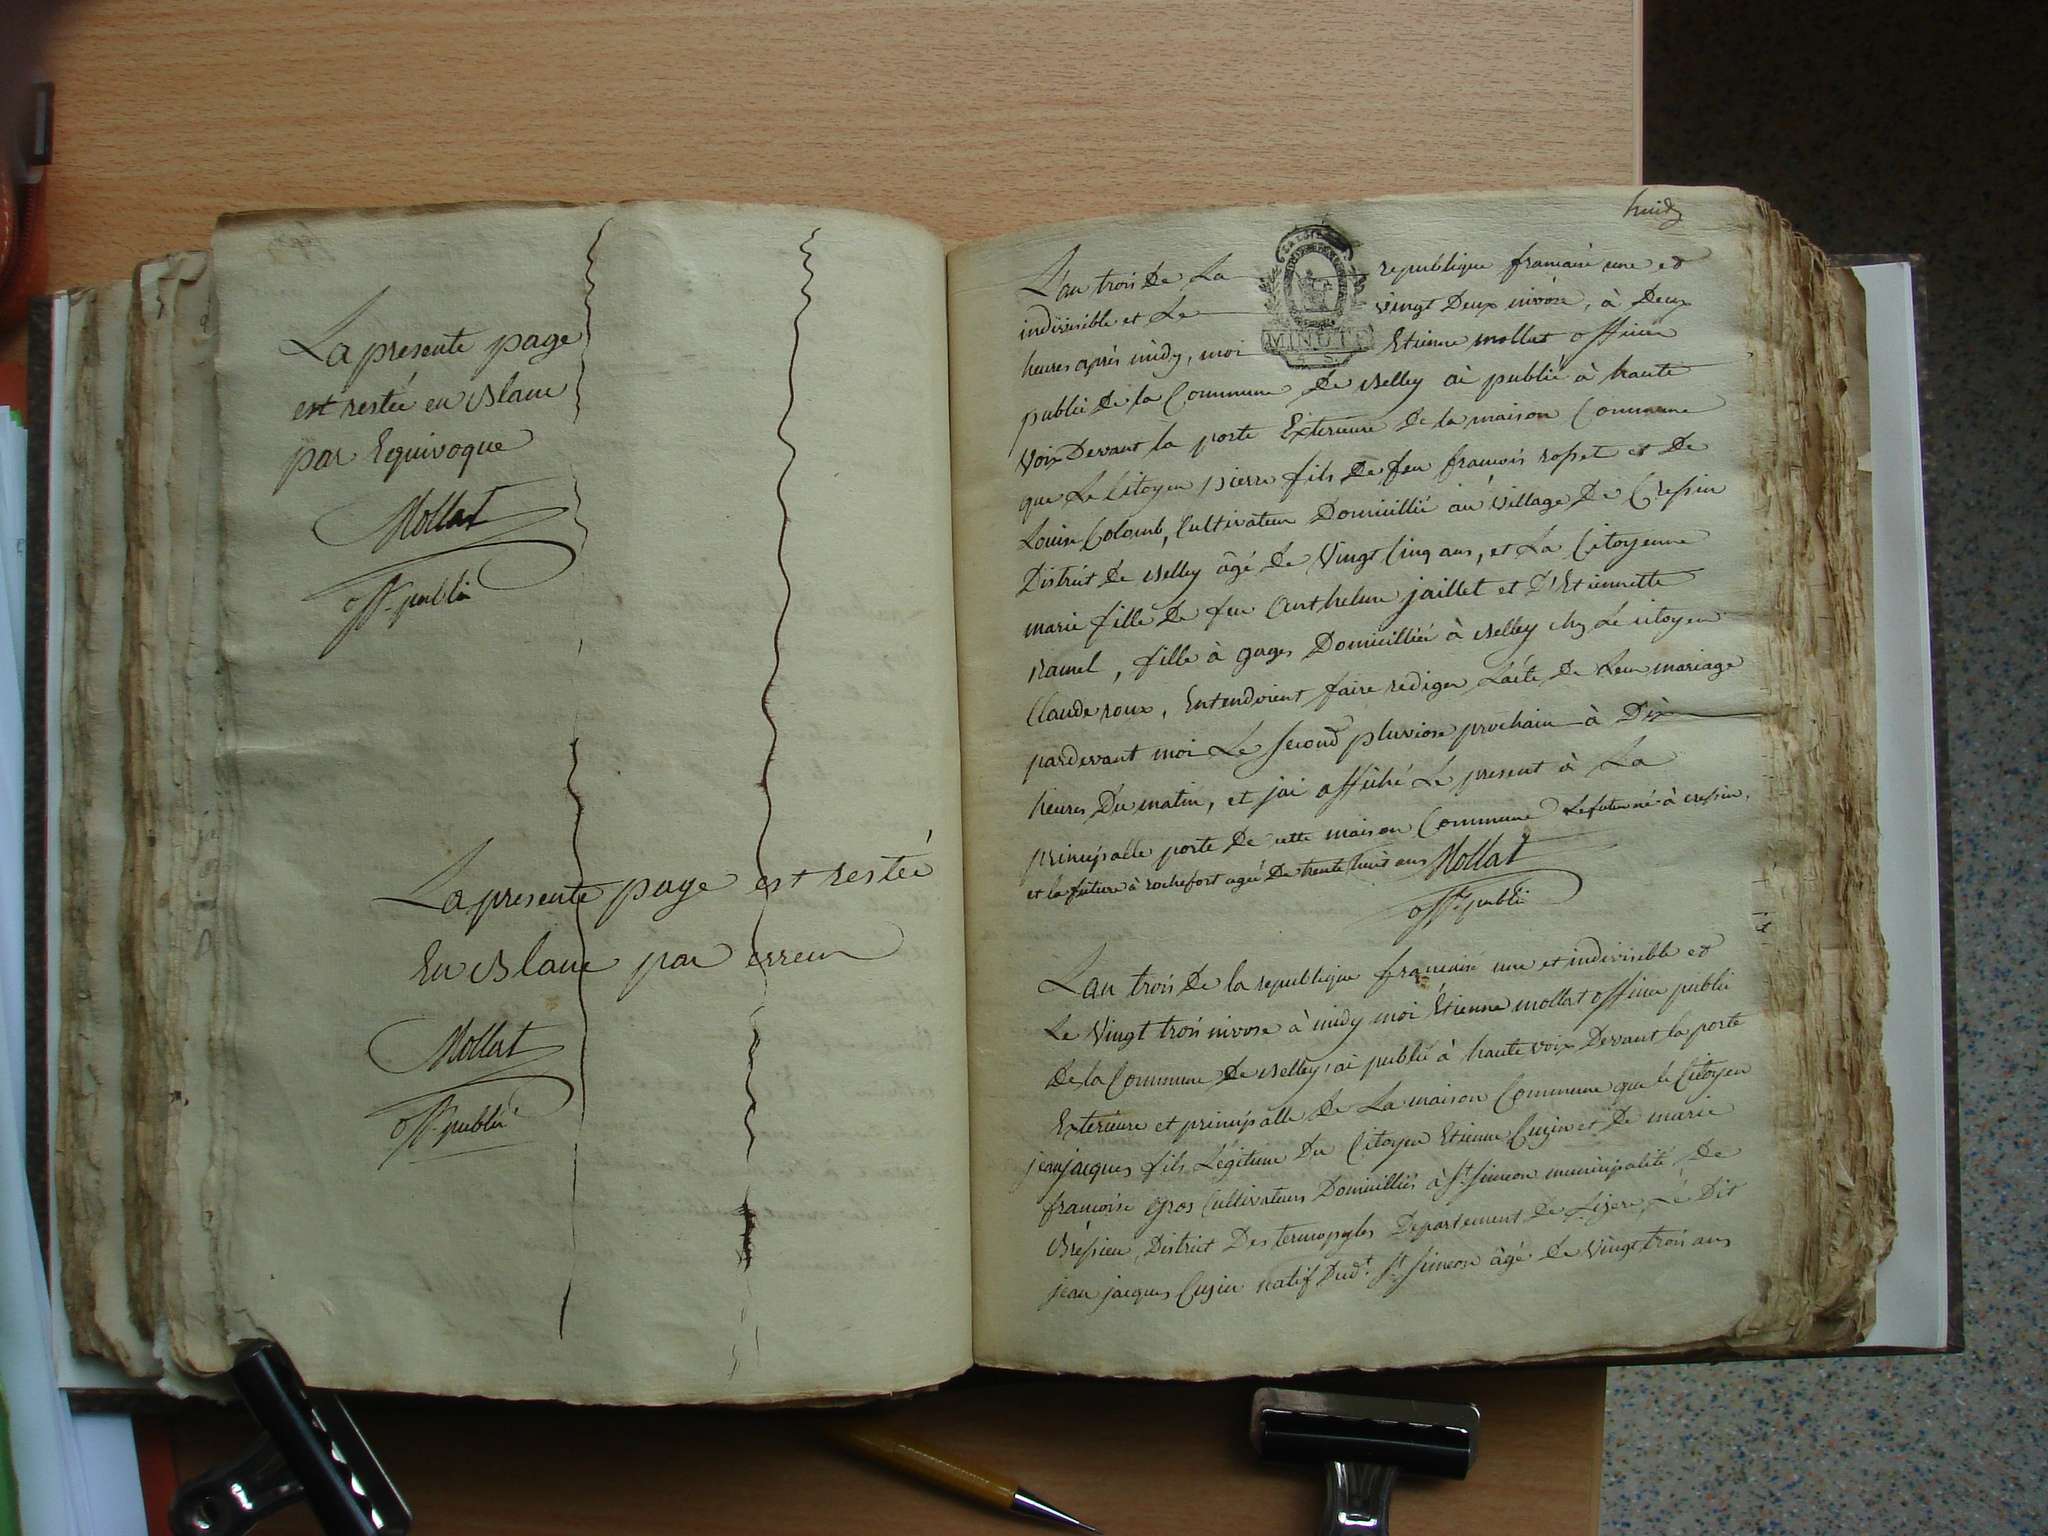 La presente page
est restée en Blanc
par Equivoque
Mollat
off. public
La presente page est restée
En Blanc par erreur
Mollat
off. public
huit
L'an trois De La republique francaise une et
indivisible et Le vingt Deux nivose, à Deux
heures après midy, moi Etienne mollat officier
public De la Commune De Belley ai publié à haute
Voix Devant la porte Exterieure De la maison Commune
que Le Citoyen pierre fils De feu francois rosset et De
Louise Colomb, Cultivateur Domicillié au Village De Cressin
District De Belley âgé De Vingt Cinq ans, et La Citoyenne
marie fille De feu Anthelme jaillet et D'Etiennette
ramel, fille à gages Domicilliée à Belley chez Le citoyen
Claude roux, Entendoient faire rediger L'acte De Leur mariage
pardevant moi Le second pluviose prochain à Dix
heures Du matin, et jai affiché Le present à La
principalle porte De cette maison Commune Le futur né à cressin,
et la future à rochefort agée De trente huit ans Mollat
off. public
MINUTE
L'an trois De la republique francaise une et indivisible et
Le Vingt trois nivose à midy moi Etienne mollat officier public
De la Commune De Belley, ai publié à haute voix Devant la porte
Exterieure et principalle De La maison Commune que le Citoyen
jean jacques fils Légitime Du Citoyen Etienne Cuzin et De marie
francoise Gros Cultivateurs Domicilliés à St. simeon municipalité De
Bressieu, District Des termopyles Departement De Lizere, Le Dit
jean jacques Cuzin natif Dudt. St. simeon âgé De Vingt trois ans